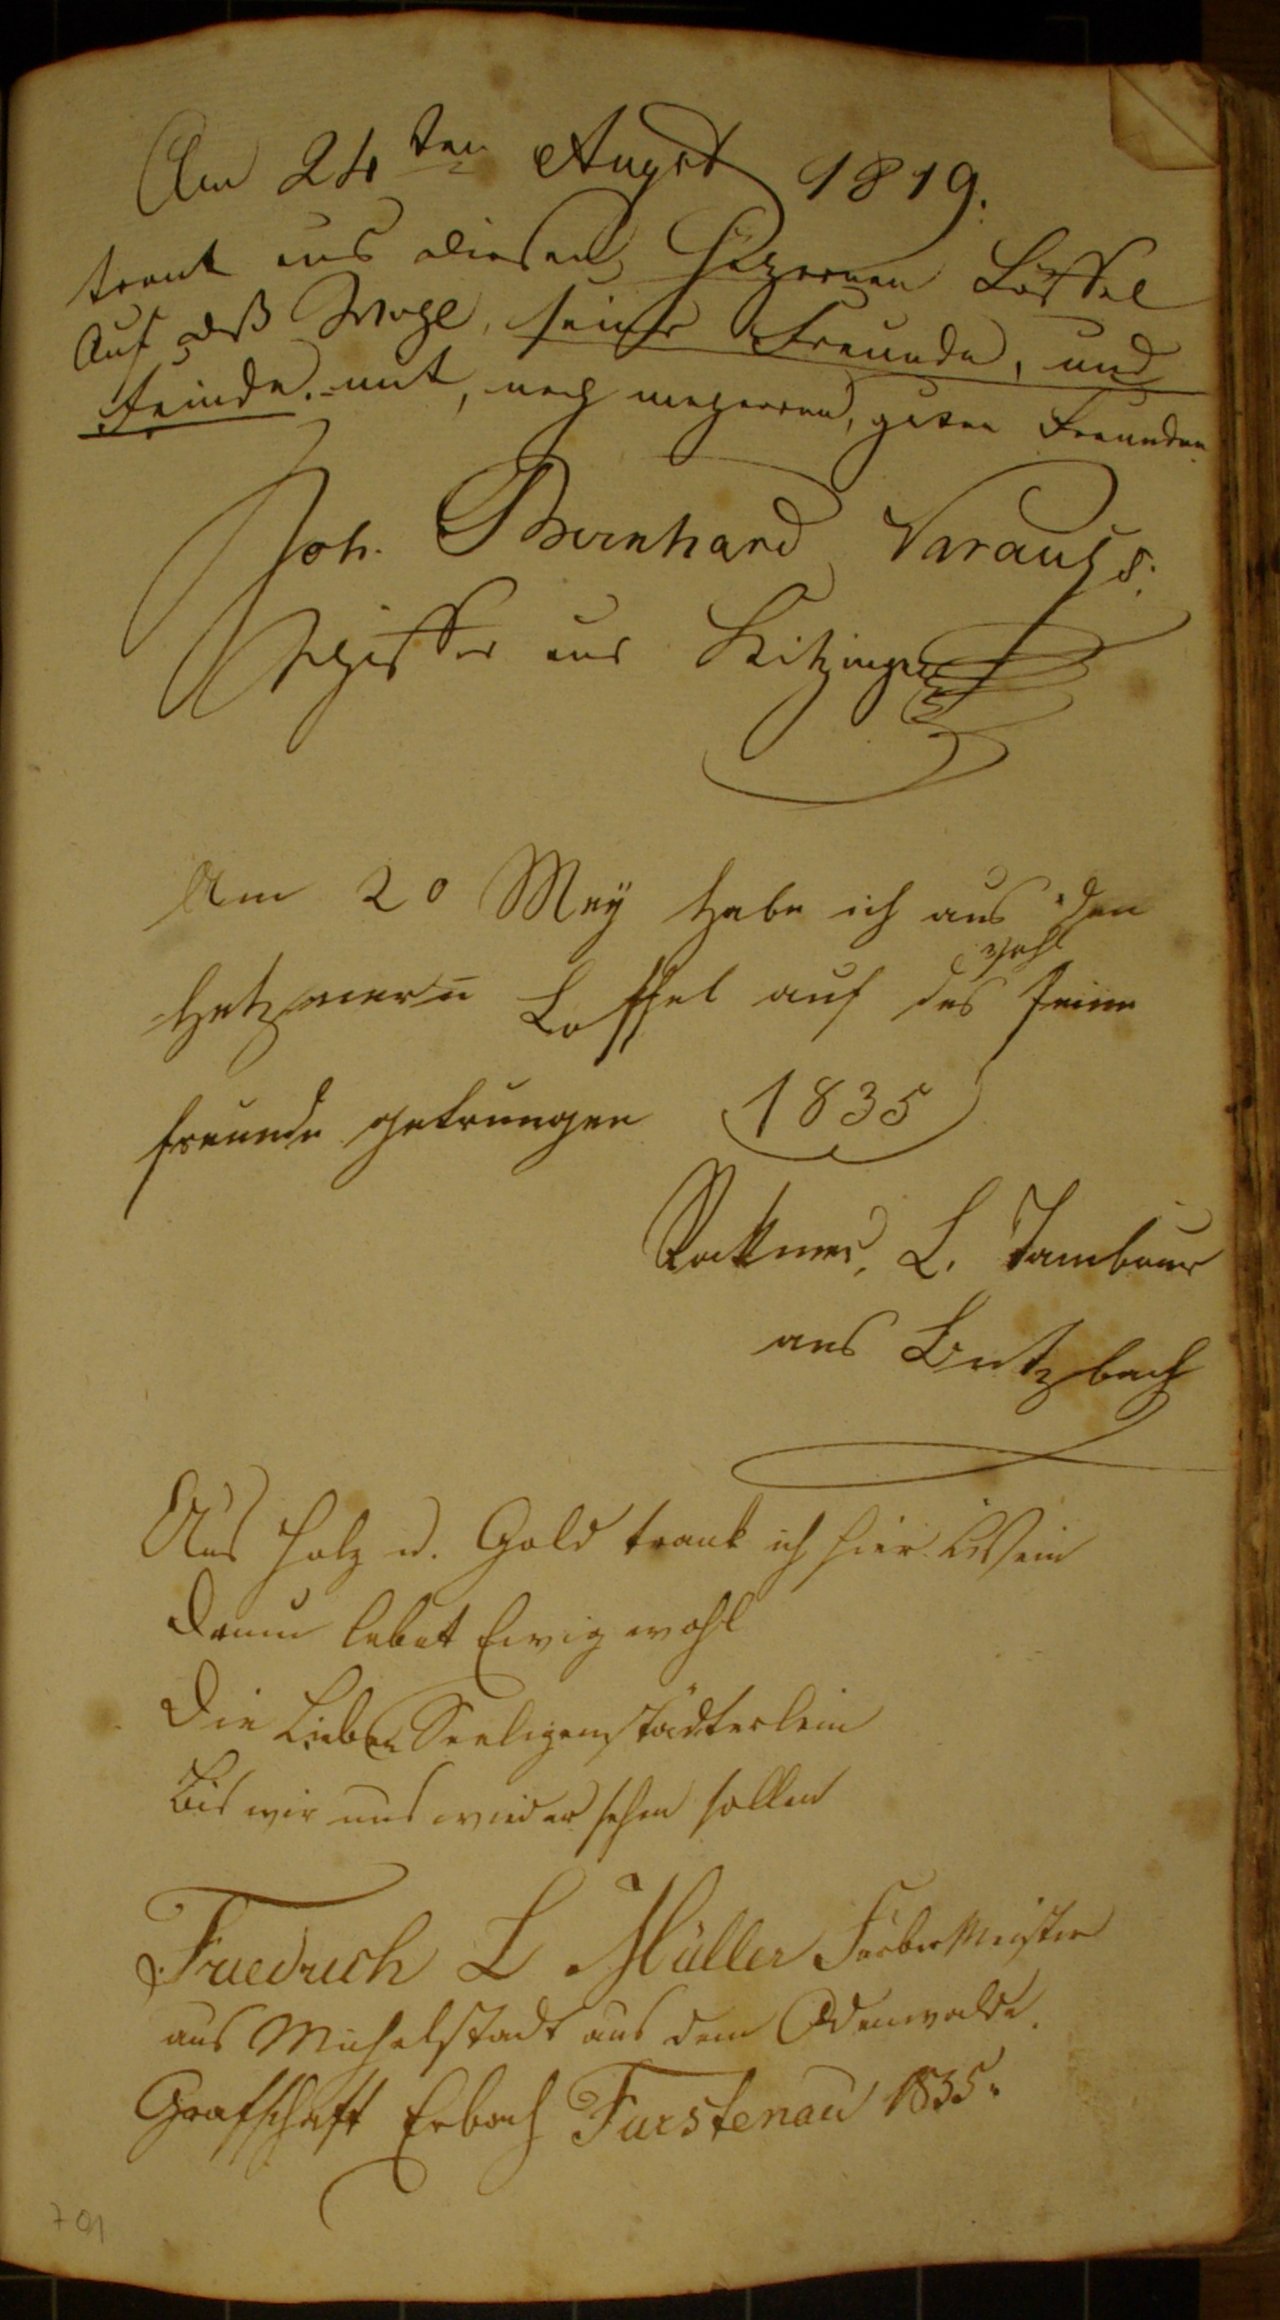 Am 24ten Augst 1819.
trank aus diesen hözernen Löffel
Auf daß Wohl, seiner Freunde, und
Feinde. mit, noch mehreren, guten Freunden.
Joh. Bernhard Varauss.
Schiffer aus Kitzingen
Am 20 Mey habe ich aus den
Löffel auf des wohl seine
freunde getrungen 1835
L. Tambour
aus Butzbach
Aus Holz u. Gold trank ich hier Wein
Drum lebet Ewig wohl
Die Lieben Seeligenstädterlein
Bis wir uns wieder sehen sollen
Friedrich L Müller Färber Meister
aus Michelstadt aus dem Odenwalde.
Grafschaft Erbach Furstenau 1835.
701